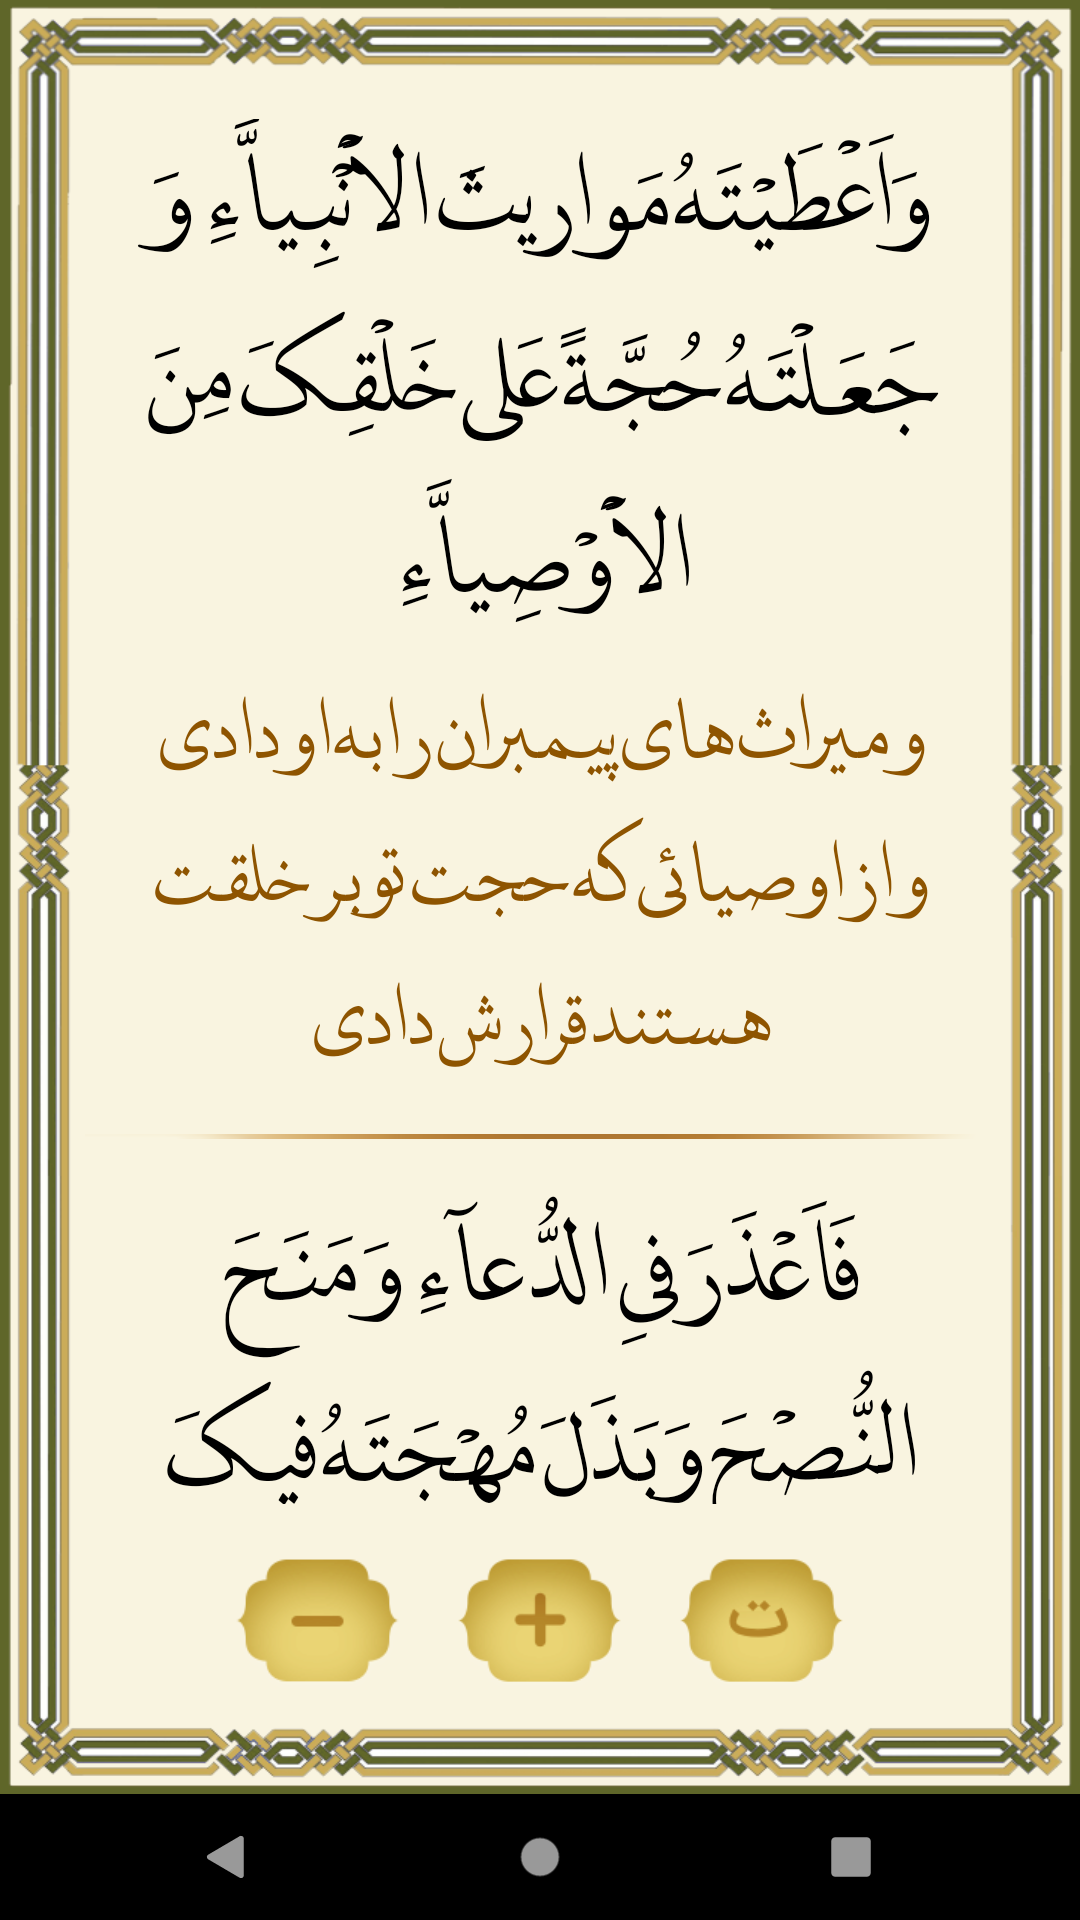 وَاَعْطَیْتَهُ مَواریثَ الاَْنْبِیاَّءِ وَ
جَعَلْتَهُ حُجَّةً عَلی خَلْقِکَ مِنَ
الاَْوْصِیاَّءِ
و میراث های پیمبران را به او دادی
و از اوصیائی که حجت تو بر خلقت
هستند قرارش دادی
فَاَعْذَرَ فیِ الدُّعآءِ وَ مَنَحَ
النُّصْحَ وَ بَذَلَ مُهْجَتَهُ فیکَ
− + ت